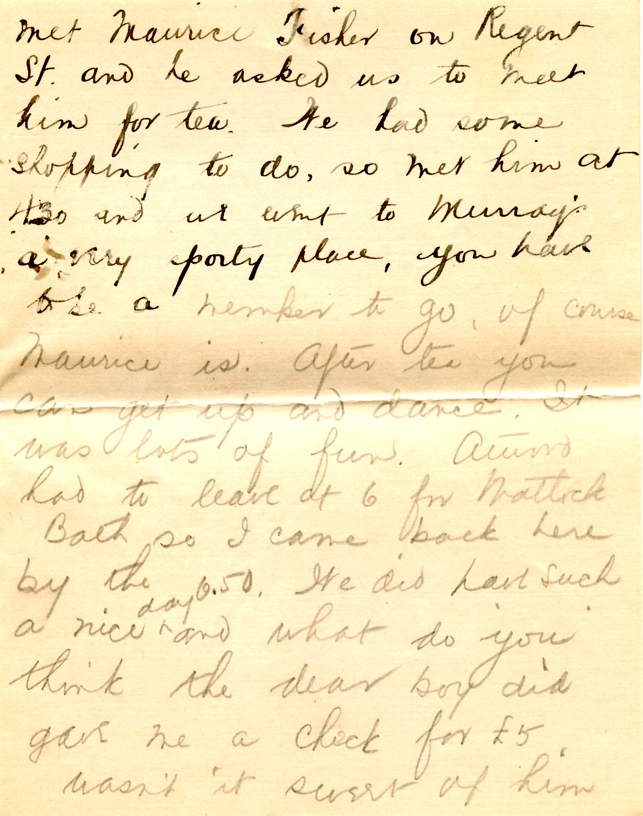 met Maurice Fisher on Regent
St. and he asked us to meet
him for tea. We had some
shopping to do, so met him at
430 and we went to Murray's
a very sporty place, you have
to be a member to go, of course
Maurice is. After tea you
can get up and dance. It
was lots of fun.
had to leave at 6 for Matlock
Bath so I came back here
by the 6.50. We did have such
a nice day and what do you
think the dear boy did
gave me a check for £5
wasn't it sweet of him